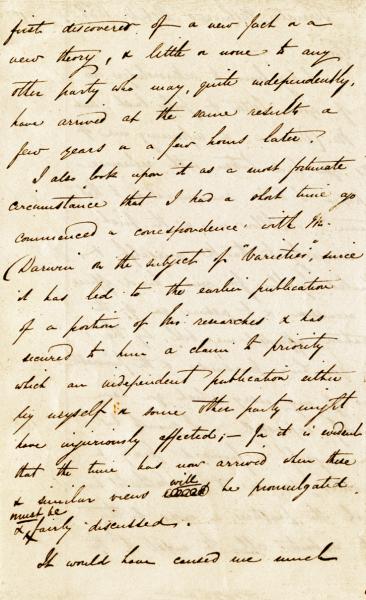 first discoverer of a new fact or a
new theory, & little or none to any
other party who may, quite independently,
have arrived at the same result a
few years or a few hours later.
I also look upon it as a most fortunate
circumstance that I had a short time ago
commenced a correspondence with Mr.
Darwin on the subject of "Varieties", since
it has led to the earlier publication
of a portion of his researches & has
secured to him a claim to priority
which an independent publication either
by myself or some other party might
have injuriously affected;— for it is evident
that the time has now arrived when these
& similar views will be promulgated
must be
& fairly discussed.
It would have caused me much